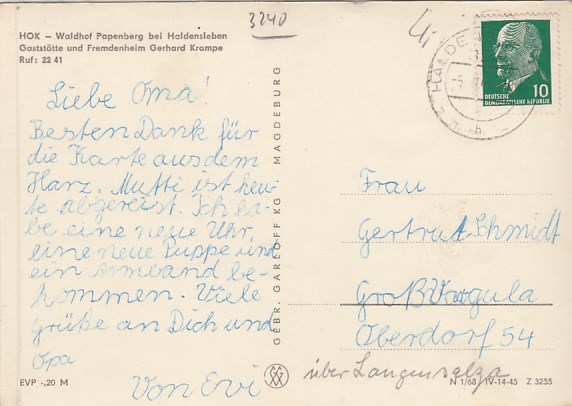 3240
HOK – Waldhof Papenberg bei Haldensleben
Gaststätte und Fremdenheim Gerhard Krampe
Ruf: 22 41
Liebe Oma!
Besten Dank für
die Karte aus dem
Harz. Mutti ist heu-
te abgereist. Ich ha-
be eine neue Uhr,
eine neue Puppe und
ein Armband be-
kommen. Viele
grüße an Dich und
Opa
Von Evi
EVP -,20 M
GEBR. GARLOFF KG · MAGDEBURG
DEUTSCHE
DEMOKRATISCHE REPUBLIK
10
Frau
Gertrud Schmidt
Großvargula
Oberdorf 54
über Langensalza
N 1/68 IV-14-45 Z 3255